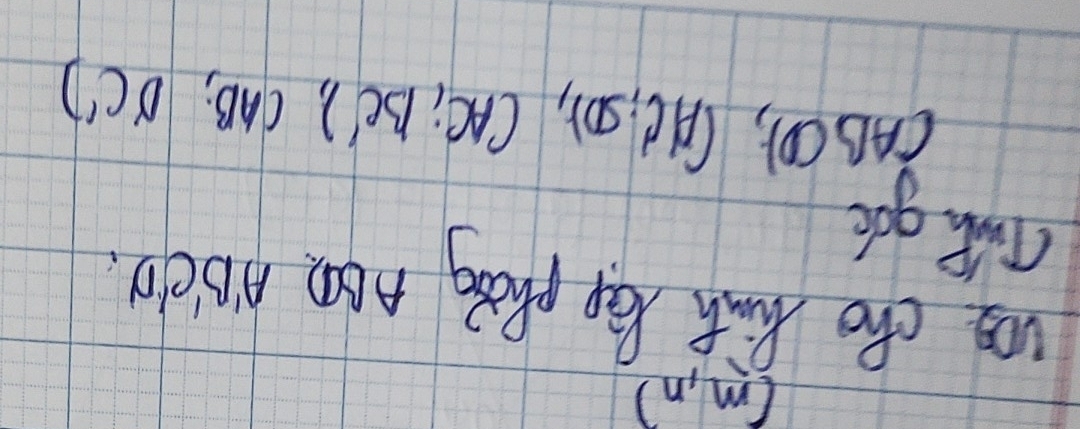 (m,n)
VD2: Cho hình lập phương ABCD. A'B'C'D'.
Tính góc
(AB CD), (A'C'; BD), (AC; BC'), (AB; DC')